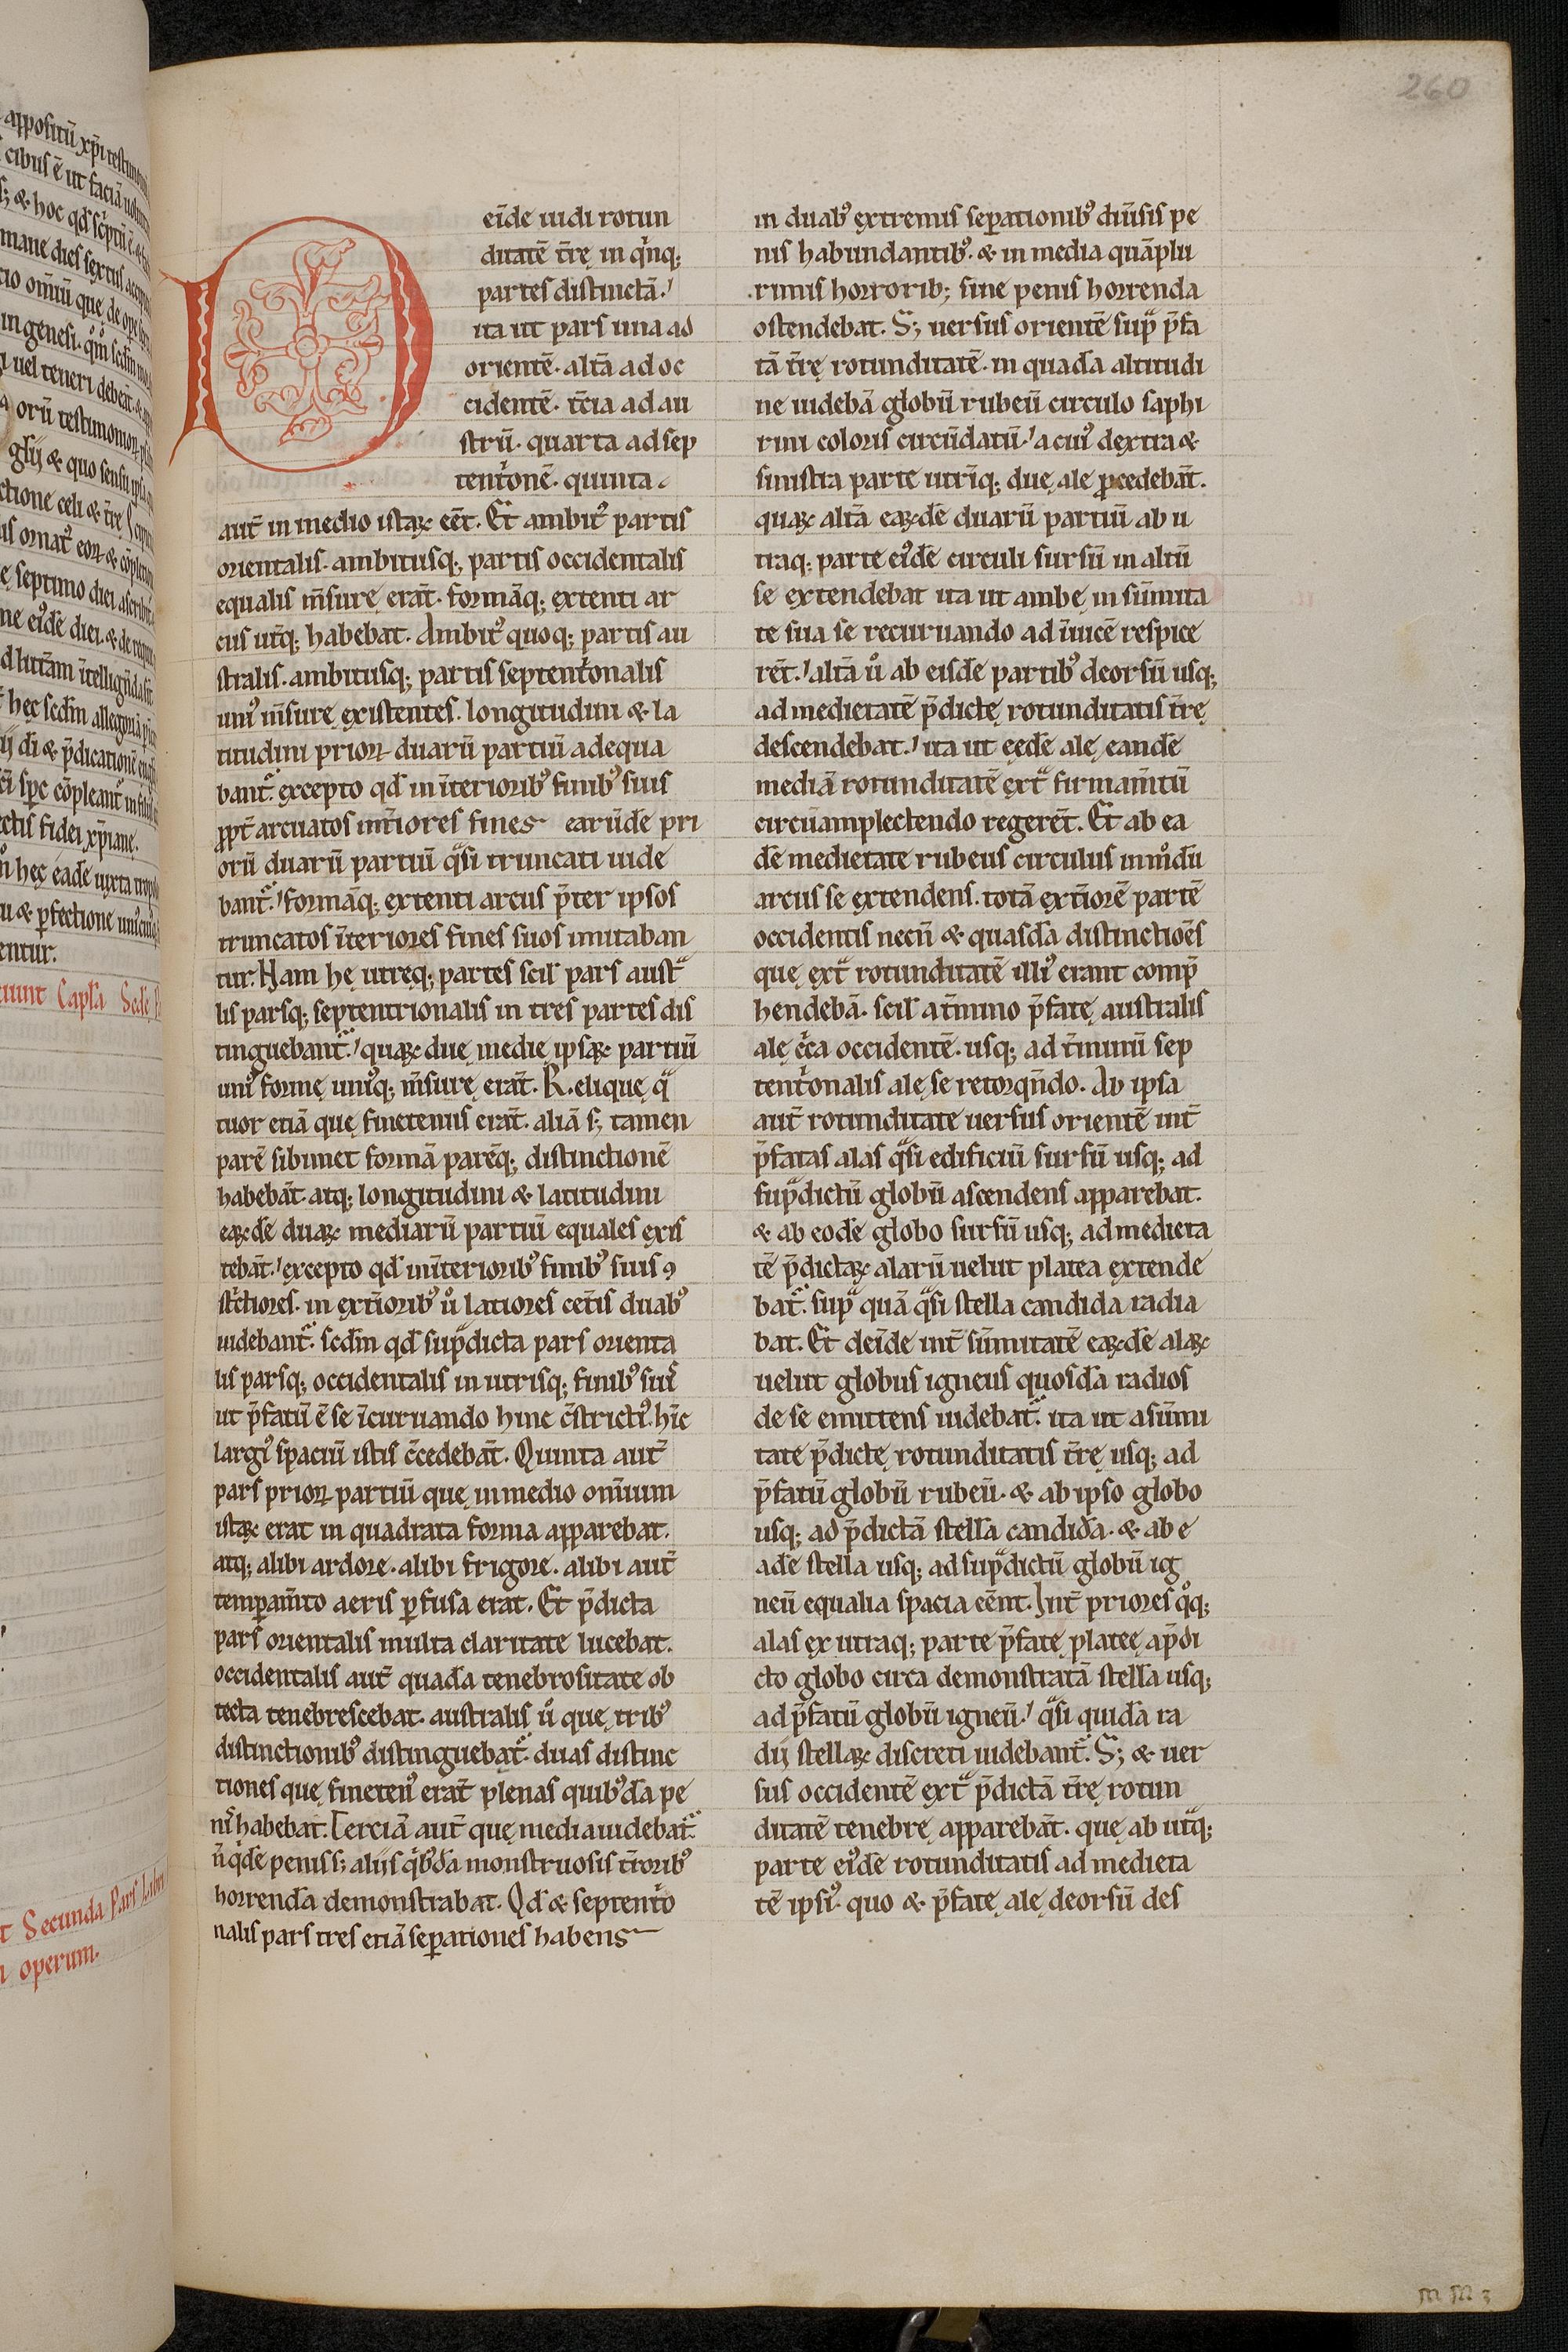 260
D
eīde uidi rotun
ditatē t̄rę in q̇nq;
partes distinctā.
ita ut pars una ad
orientē. altā ad oc
cidentē. t̄cia ad au
strū. quarta ad sep
tent̓onē. quinta
aut̄ in medio istaꝝ eēt. Et ambit᷒ partis
orientalis. ambitusq; partis occidentalis
equalis m̄sure, erāt. formāq; extenti ar
cus utq; habebat. Ambit᷒ quoq; partis au
stralis. ambitusq; partis septent̓onalis
uni᷒ m̄surę existentes. longitudini & la
titudini prioꝝ duarū partiū adequa
bant᷑. excepto qd̄ in īteriorib᷒ finib᷒ suis
ꝓpt̄ arcuatos int̄iores fines earūde pri
orū duarū partiū q̇si truncati uide
bant᷑. formāq; extenti arcus p̄ter ipsos
truncatos īteriores fines suos imitaban
tur. Nam hę utreq; partes scil pars aust᷑
lis parsq; septentrionalis in tres partes dis
tinguebant᷑. quaꝝ duę medię ipsaꝝ partiū
uni᷒ formę uni᷒q; m̄surę erāt. Relique, q᷑
tuor etiā que, finetenus erāt. aliā s; tamen
parē sibimet formā parēq; distinctionē
habebāt. atq; longitudini & latitudini
eaꝝdē duaꝝ mediarū partiū equales exis
tebāt. excepto qd̄ in īteriorib᷒ finib᷒ suis ꝯ
st̓ctiores. in ext̄iorib᷒ u̓ latiores cet̄is duab᷒
uidebant᷑. scdm̄ qd̄ sup᷑dicta pars orienta
lis parsq; occidentalis in utrisq; finib᷒ suis
ut p̄fatū ē se īcuruando hinc c̄stricti᷒. hīc
largi᷒ spaciū istis c̄cedebāt. Quinta aut̄
pars prioꝝ partiū que, in medio omīum
istaꝝ erat in quadrata forma apparebat.
atq; alibi ardore. alibi frigore. alibi aut̄
temperam̄to aeris ꝑfusa erat. Et p̄dicta
pars orientalis multa claritate lucebat.
occidentalis aut̄ quadā tenebrositate ob
tecta tenebrescebat. australis u̓ que, trib᷒
distinctionib᷒ distinguebat᷑. duas distinc
tiones que, fineten᷒ erāt plenas quib᷒dā pe
nis habebat. Terciā aut̄ que, media uidebat᷑.
n̄ q̇dē penis s; aliis q̇b᷒dā monstruosis t̄rorib᷒
horrendā demonstrabat. Qd̄ & septent̓o
nalis pars tres etiā seꝑationes habens
in duab᷒ extremis seꝑationib᷒ diūsis pe
nis habundantib᷒. & in media quāplu
rimis horrorib; sine penis horrenda
ostendebat. S; uersus orientē sup᷑ p̄fa
tā t̄rę rotunditatē. in quadā altitudi
ne uidebā globū rubeū circulo saphi
rini coloris circūdatū. a cui᷒ dextra &
sinistra parte utriq; due, ale, ꝓcedebāt.
quaꝝ altā eaꝝdē duarū partiū ab u
traq; parte ei᷒dē circuli sursū in altū
se extendebat ita ut ambę in sūmita
te sua se recuruando ad īuicē respice
rēt. altā u̓ ab eisdē partib᷒ deorsū usq;
ad medietatē p̄dictę rotunditatis t̄rę
descendebat. ita ut eędē alę eandē
mediā rotunditatē ext᷑ firmam̄tū
circūamplectendo regerēt. Et ab ea
dē medietate rubeus circulus in mȯdū
arcus se extendens. totā ext̄iorē partē
occidentis necn̄ & quasdā distinctiōes
que, ext᷑ rotunditatē illi᷒ erant comp̄
hendebā. scil a t̄mino p̄fatę australis
alę c̓ca occidentē. usq; ad t̄minū sep
tent̓onalis alę se retorqn̄do. Ab ipsa
aut̄ rotunditate uersus orientē int̄
p̄fatas alas q᷑si edificiū sursū usq; ad
sup᷑dictū globū ascendens apparebat.
& ab eodē globo sursū usq; ad medieta
tē p̄dictaꝝ alarū uelut platea extende
bat᷑. sup᷑ quā q᷑si stella candida radia
bat. Et deīde int̄ sūmitatē eaꝝdē alaꝝ
uelut globus igneus quosdā radios
de se emittens uidebat᷑. ita ut a sūmi
tate p̄dictę rotunditatis t̄rę usq; ad
p̄fatū globū rubeū. & ab ipso globo
usq; ad p̄dictā stellā candidā. & ab e
adē stella usq; ad sup᷑dictū globū ig
neū equalia spacia eēnt. Int̄ priores q̊q;
alas ex utraq; parte p̄fatę plateę a p̄di
cto globo circa demonstratā stellā usq;
ad p̄fatū globū igneū. q᷑si quidā ra
dij stellaꝝ discreti uidebant᷑. S; & uer
sus occidentē ext᷑ p̄dictā t̄rę rotun
ditatē tenebrę apparebāt. que, ab utq;
parte ei᷒dē rotunditatis ad medieta
tē ipsi᷒. quo & p̄fatę alę deorsū des